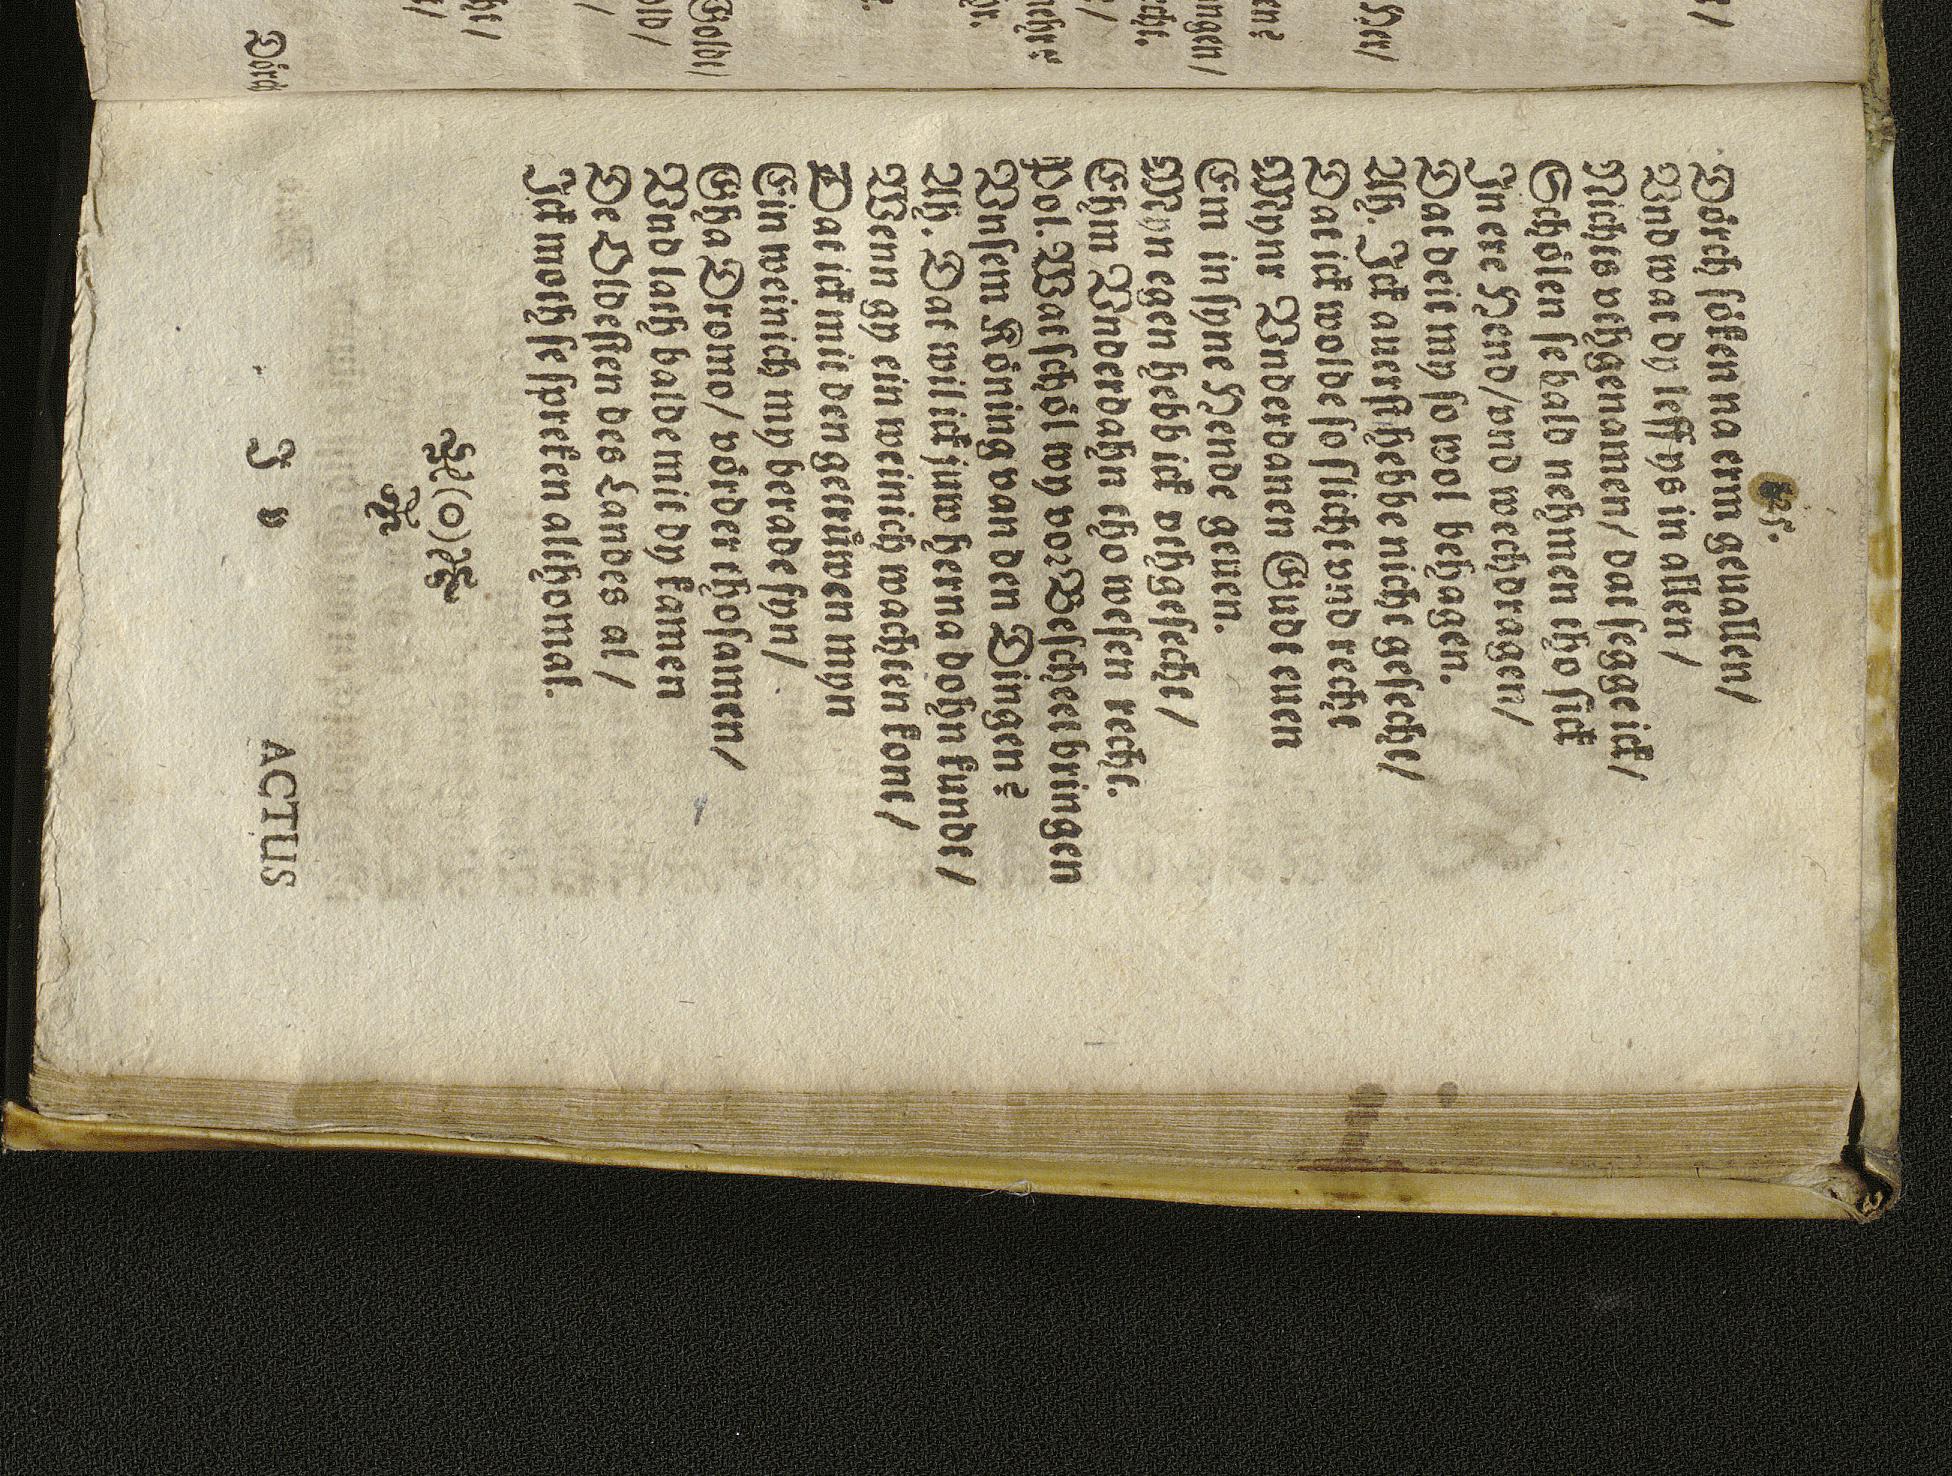 Dörch sölken na erm geuallen/
Vnd wat dy leff ys in allen/
Nichts vthgenamen/ dat segge ick/
Schölen se bald nehmen tho sick
In ere Hend/ vnd wechdragen/
Dat deit my so wol behagen.
Ah. Ick auerst hebbe nicht gesecht/
Dat ick wolde so slicht vnd recht
Mynr Vnderdanen Gudt euen
Em in syne Hende geuen.
Myn egen hebb ick vthgesecht/
Ehm Vnderdahn tho wesen recht.
Pol. Wat schöl wy vor Bescheet bringen
Vnsem Köning van den Dingen?
Ah. Dat wil ick juw herna dohn kundt/
Wenn gy ein weinich wachten kont/
Dat ick mit den getrüwen myn
Ein weinich my berade syn/
Eha Dromo/ vörder thosamen/
Vnd lath balde mit dy kamen
De Oldesten des Landes al/
Ick moth se spreken althomal.
(o)
J v
ACTUS
25.
Dörch